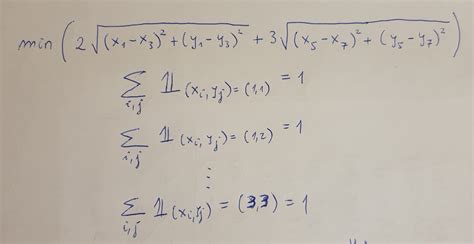 min (2√((x₁-x₃)²+(y₁-y₃)²) + 3√((x₅-x₇)²+(y₅-y₇)²))
∑_{i,j} 𝟙_{(x_i,y_j)=(1,1)} = 1
∑_{i,j} 𝟙_{(x_i,y_j)=(1,2)} = 1
⋮
∑_{i,j} 𝟙_{(x_i,y_j)} = (3,3) = 1